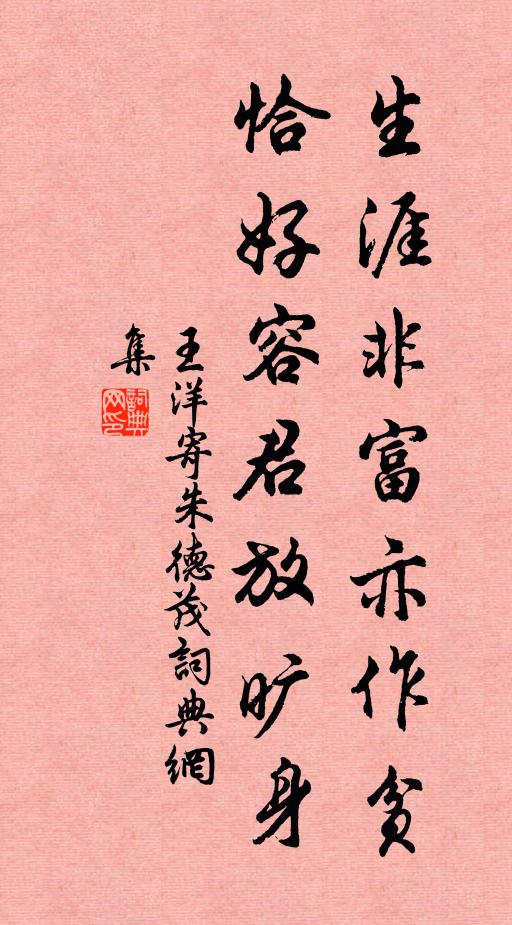 生涯非富亦作贫
恰好容君放旷身
王洋寄朱德茂詞典網
集
詞典
网印